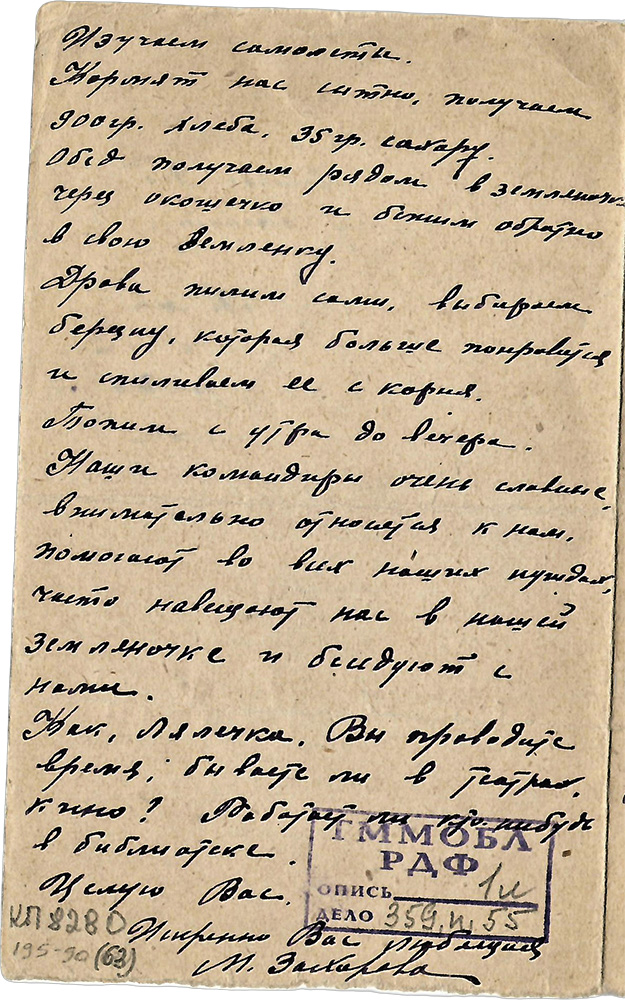 Изучаем самолеты.
Кормят нас сытно, получаем
900гр. хлеба, 35гр. сахару.
Обед получаем рядом в земляночке
через окошечко и бежим обратно
в свою Землянку.
Дрова пилим сами, выбираем
березу, которая больше понравится
и спиливаем ее с корня.
Топим с утра до вечера.
Наши командиры очень славные,
внимательно относятся к нам,
помогают во всех наших нуждах,
часто навещают нас в нашей
земляночке и беседуют с
нами.
Как, Лялечка, Вы проводите
время, бываете ли в театрах,
кино? Работает ли кто-нибудь
в библиотеке.
Целую Вас.
Искренно Вас любящая
М. Захарова
ГММОБЛ
РДФ
ОПИСЬ 1и
ДЕЛО 359, п, 55
КП 8280
195-90 (63)